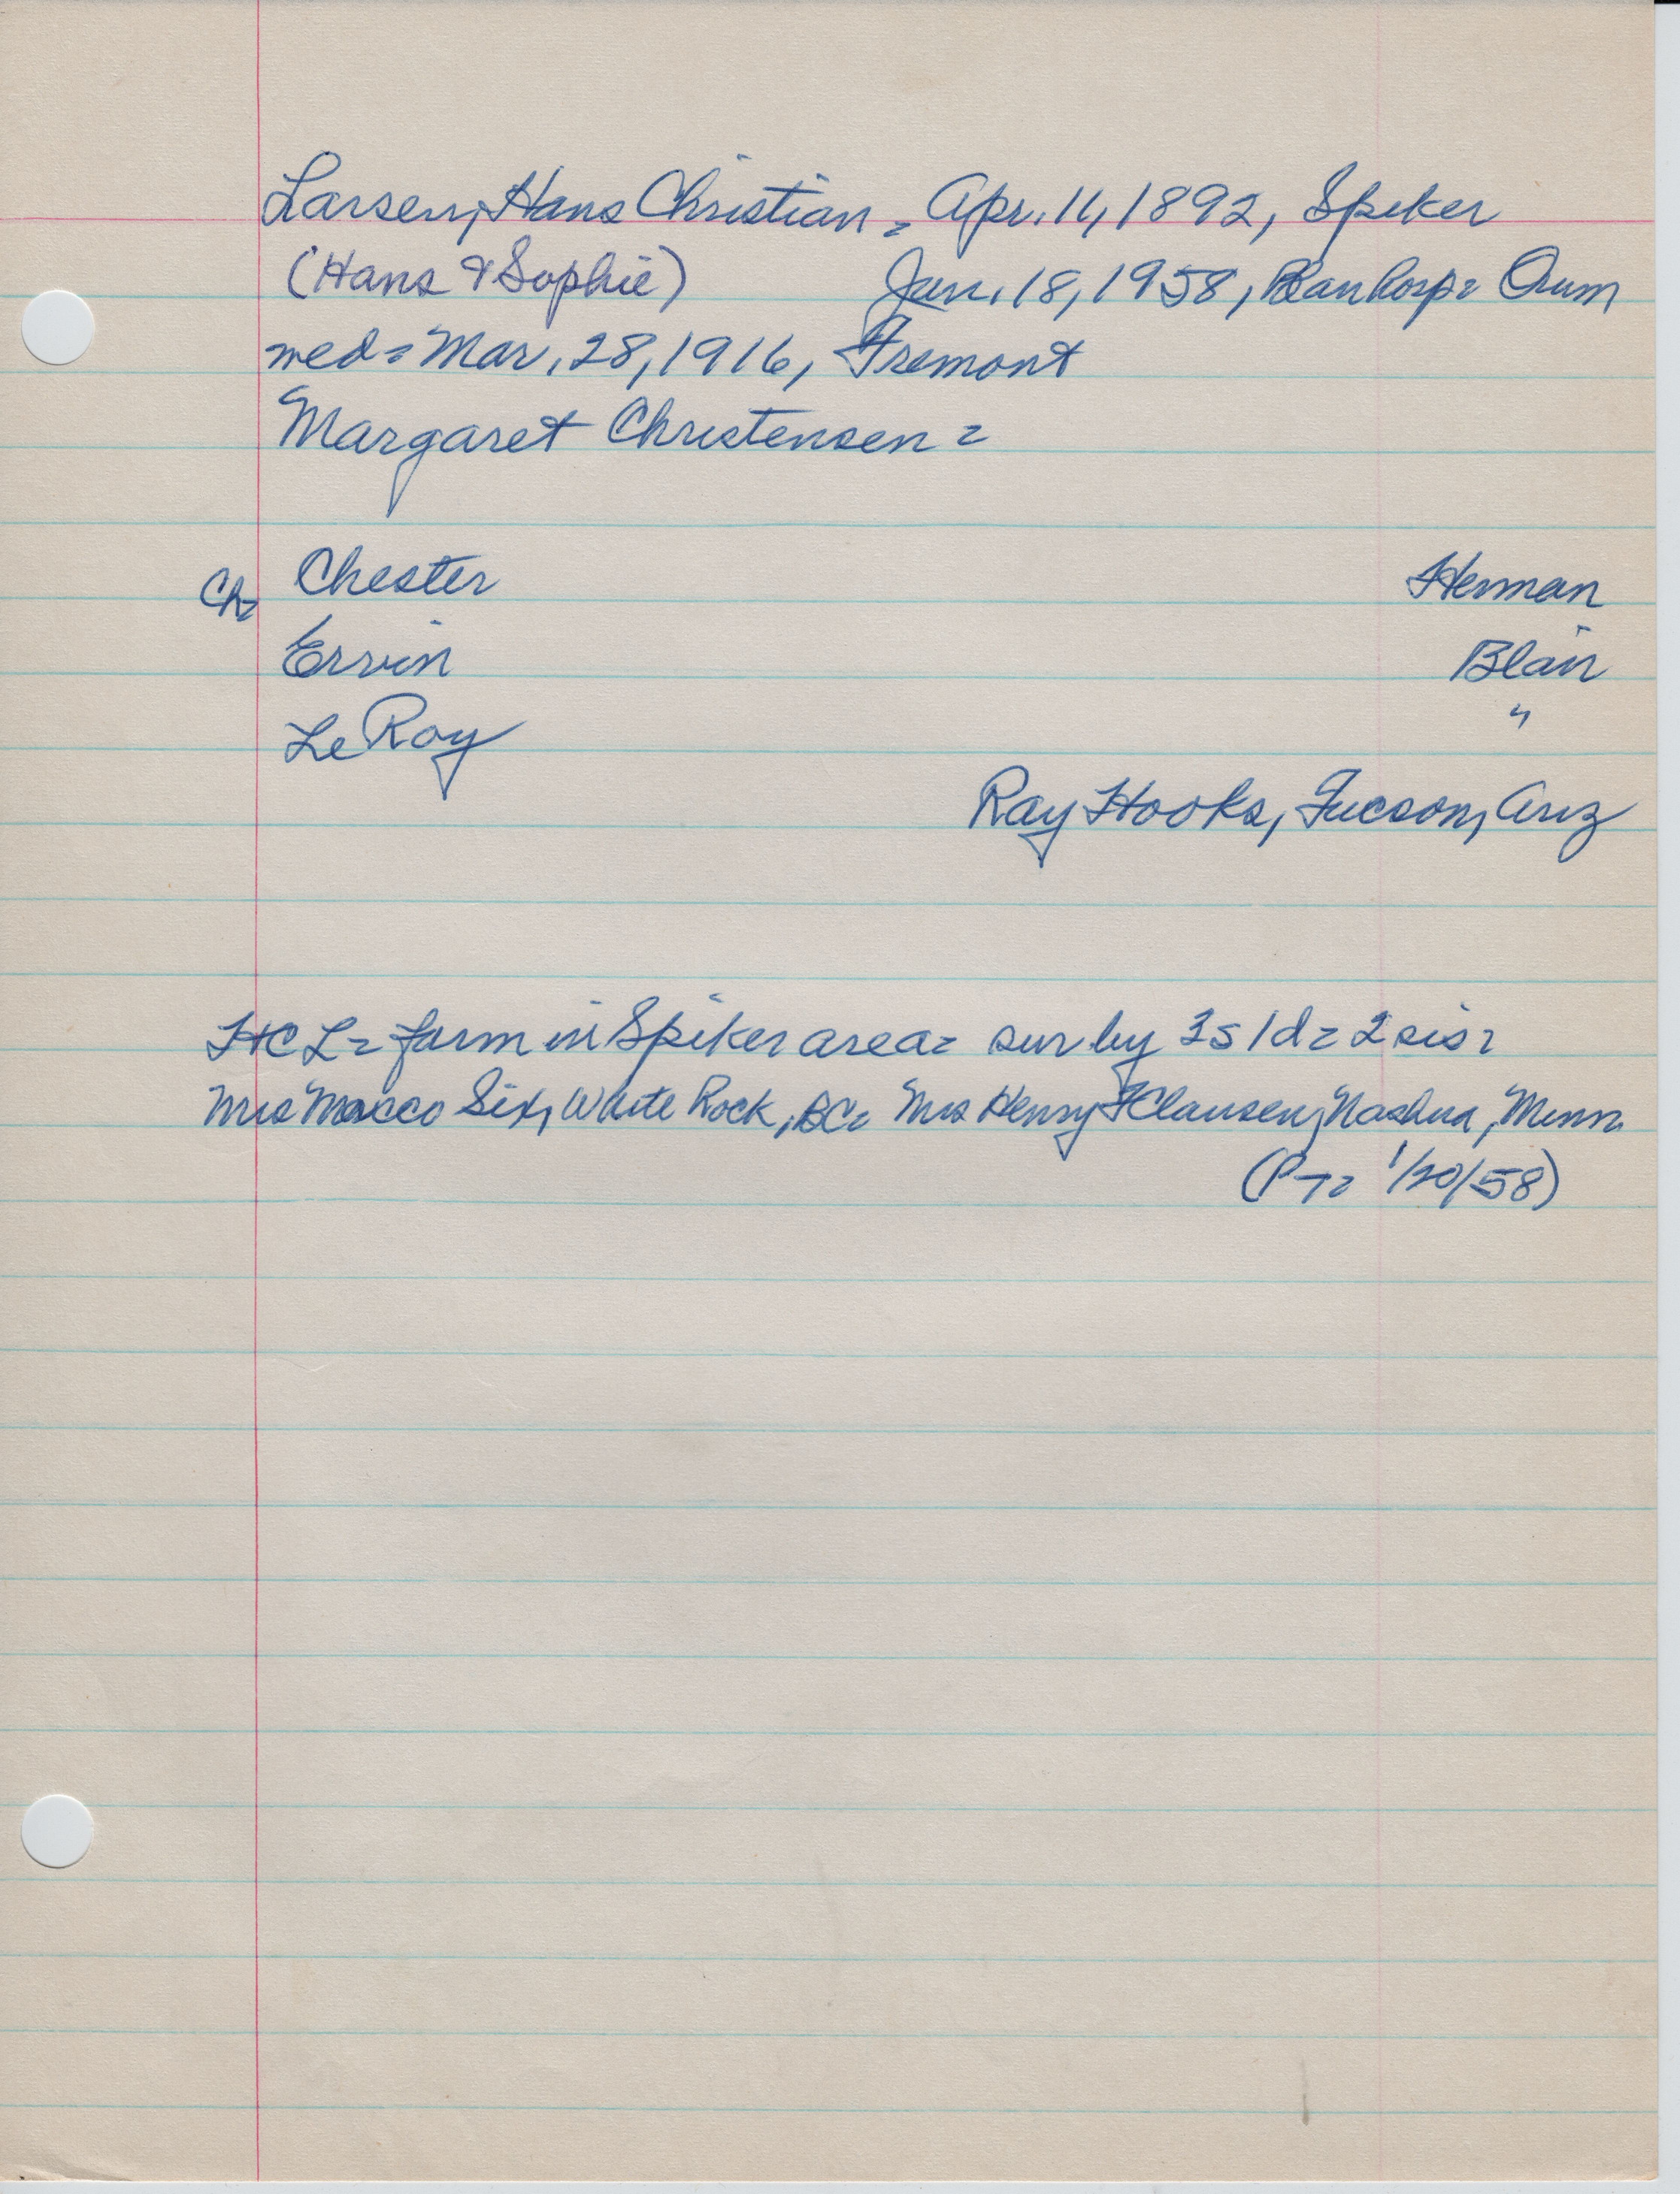 Larsen, Hans Christian = Apr. 14, 1892, Spiker
(Hans & Sophie) Jan. 18, 1958, Blair hosp = Orum
wed = Mar. 28, 1916, Fremont
Margaret Christensen =
Ch = Chester Herman
Ervin Blair
LeRoy "
Ray Hooks, Tucson, Ariz
HCL = farm in Spiker area = sur by 3s 1d = 2 sis =
Mrs Six, White Rock, BC = Mrs Henry Clausen, Nashua, Minn
(PT = 1/20/58)